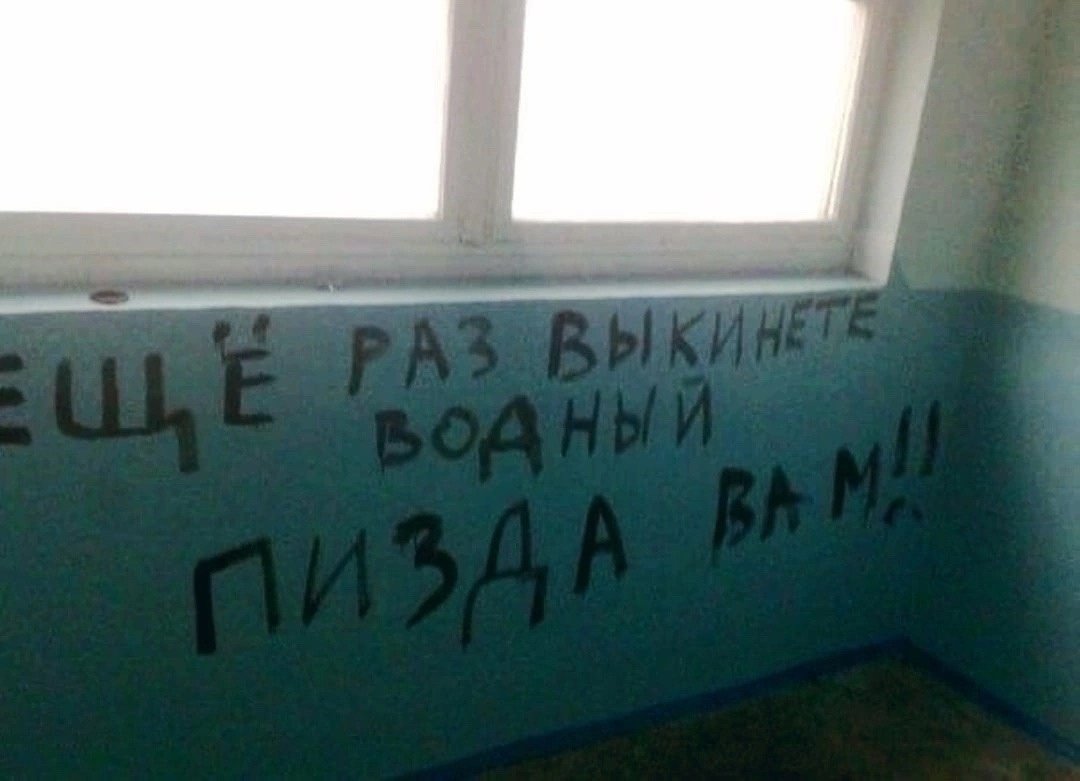 ЕЩЁ РАЗ ВЫКИНЕТЕ
ВОДНЫЙ
ПИЗДА ВАМ!!